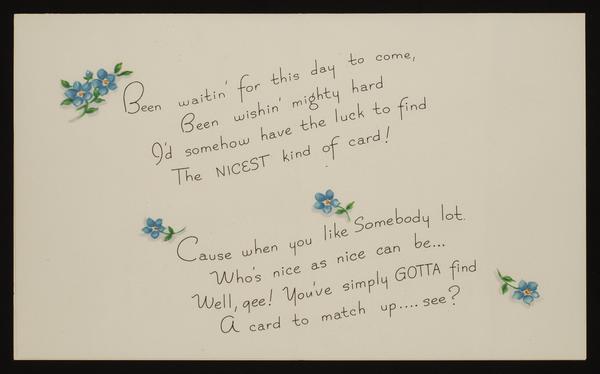 Been waitin' for this day to come,
Been wishin' mighty hard
I'd somehow have the luck to find
The NICEST kind of card!
Cause when you like Somebody lot.
Who's nice as nice can be...
Well, gee! You've simply GOTTA find
A card to match up.... see?